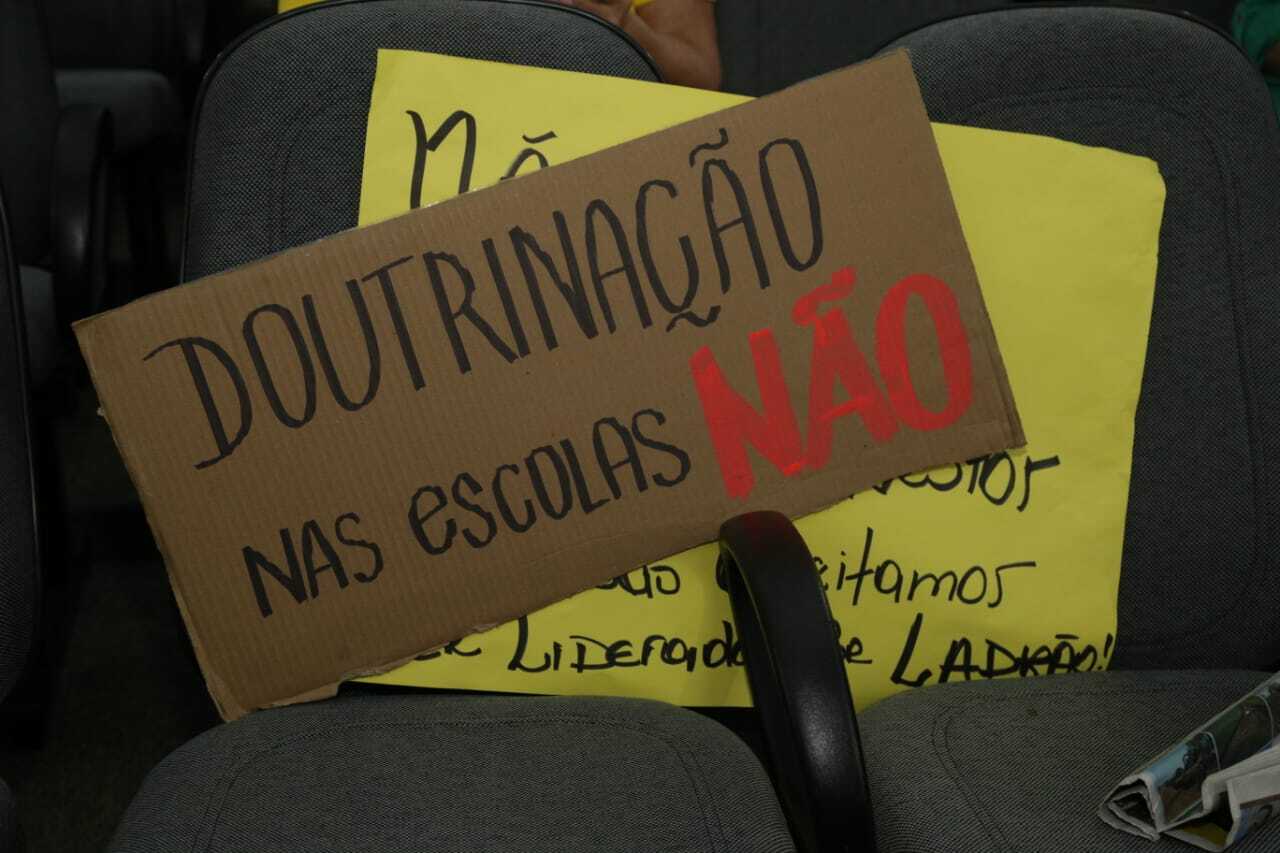 DOUTRINAÇÃO
NAS ESCOLAS NÃO
aceitamos
Ser Liderado de LADRÃO!